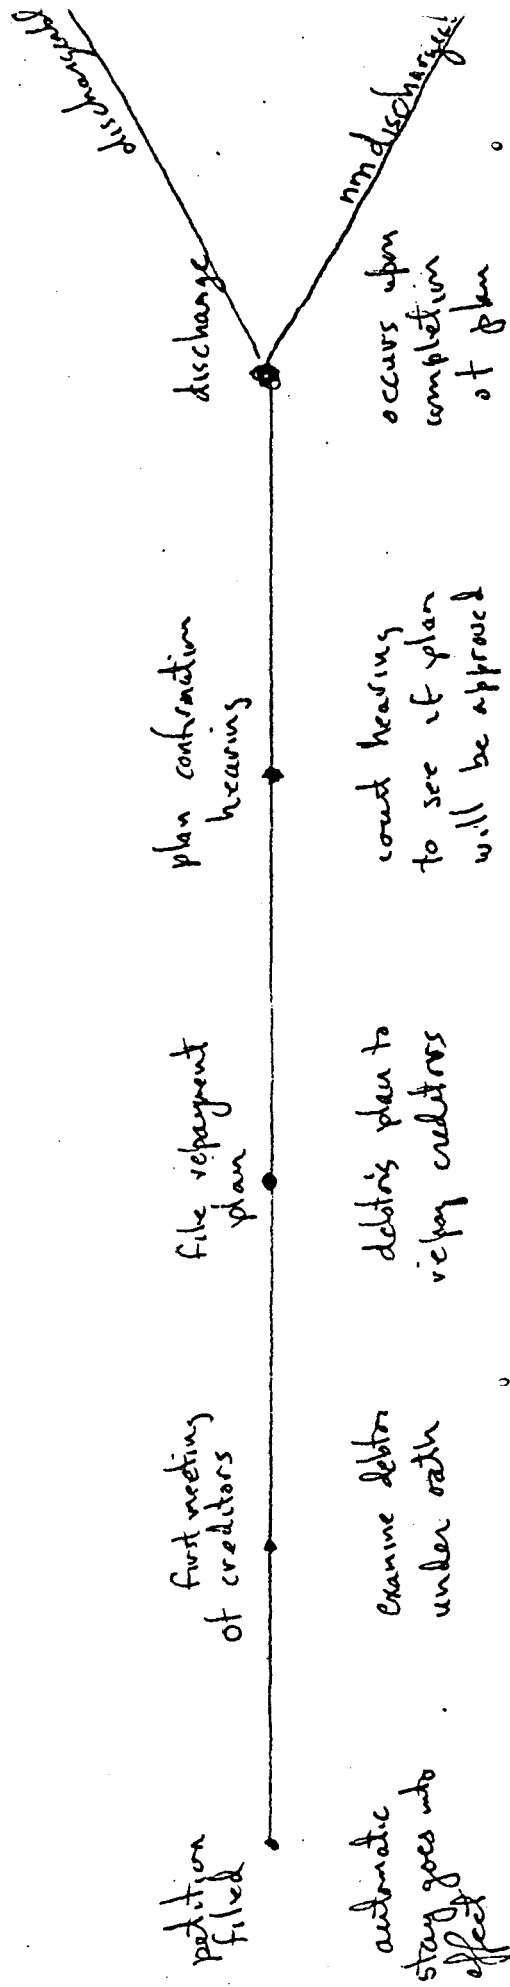 petition
filed
automatic
stay goes into
effect
first meeting
of creditors
examine debtor
under oath
file repayment
plan
debtor's plan to
repay creditors
plan confirmation
hearing
court hearing
to see if plan
will be approved
discharge
occurs upon
completion
of plan
dischargeable
nondischarge